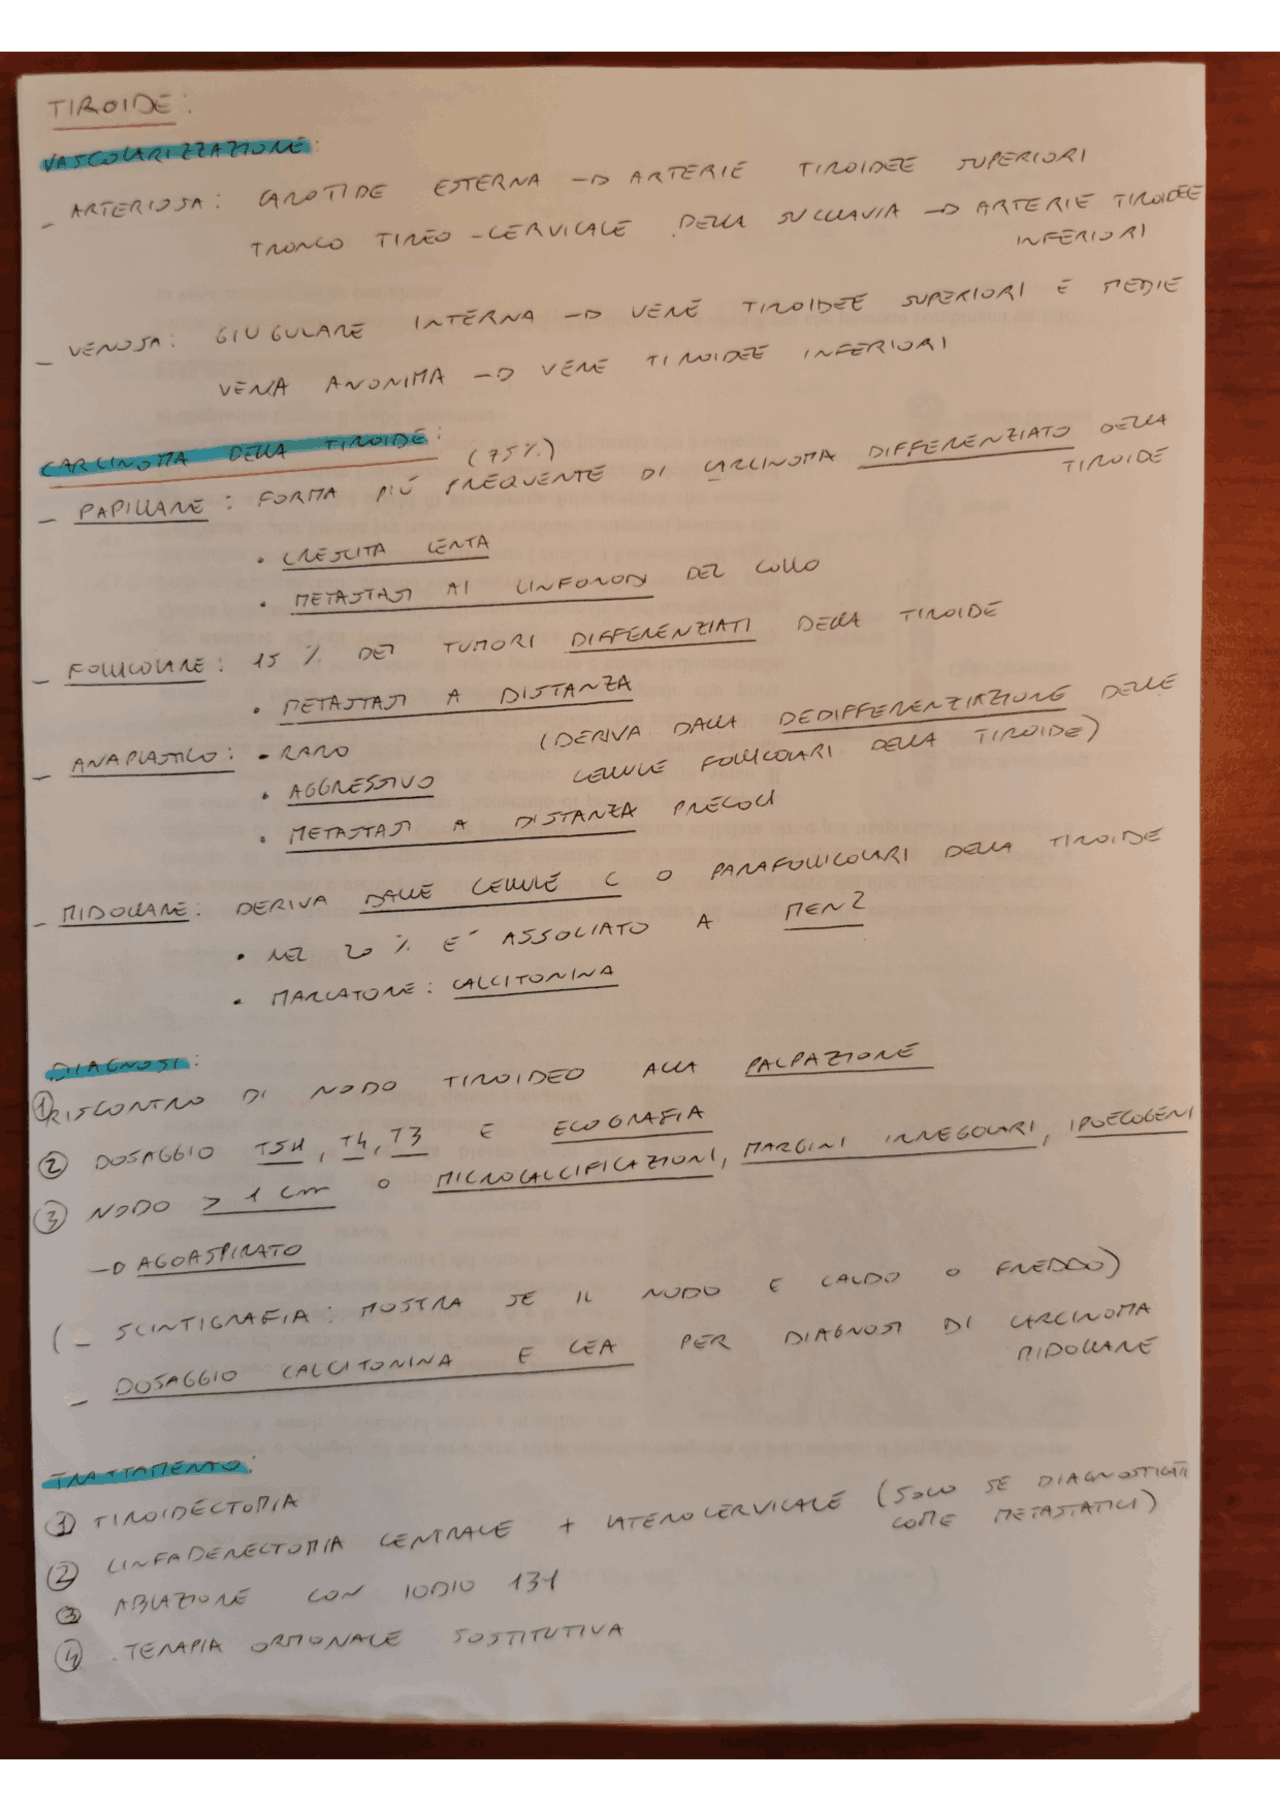 TIROIDE:
VASCOLARIZZAZIONE:
- ARTERIOSA: CAROTIDE ESTERNA → ARTERIE TIROIDEE SUPERIORI
TRONCO TIREO-CERVICALE DELLA SUCCLAVIA → ARTERIE TIROIDEE
INFERIORI
- VENOSA: GIUGULARE INTERNA → VENE TIROIDEE SUPERIORI E MEDIE
VENA ANONIMA → VENE TIROIDEE INFERIORI
CARCINOMA DELLA TIROIDE:
(75%)
- PAPILLARE: FORMA PIÚ FREQUENTE DI CARCINOMA DIFFERENZIATO DELLA
TIROIDE
• CRESCITA LENTA
• METASTASI AI LINFONODI DEL COLLO
- FOLLICOLARE: 15 % DEI TUMORI DIFFERENZIATI DELLA TIROIDE
• METASTASI A DISTANZA
- ANAPLASTICO: • RARO (DERIVA DALLA DEDIFFERENZIAZIONE DELLE
CELLULE FOLLICOLARI DELLA TIROIDE)
• AGGRESSIVO
• METASTASI A DISTANZA PRECOCI
- MIDOLLARE: DERIVA DALLE CELLULE C O PARAFOLLICOLARI DELLA TIROIDE
• NEL 20 % E' ASSOCIATO A MEN2
• MARCATORE: CALCITONINA
DIAGNOSI:
① RISCONTRO DI NODO TIROIDEO ALLA PALPAZIONE
② DOSAGGIO TSH, T4, T3 E ECOGRAFIA
③ NODO > 1 cm O MICROCALCIFICAZIONI, MARGINI IRREGOLARI, IPOECOGENI
→ AGOASPIRATO
(- SCINTIGRAFIA: MOSTRA SE IL NODO E CALDO O FREDDO)
- DOSAGGIO CALCITONINA E CEA PER DIAGNOSI DI CARCINOMA
MIDOLLARE
TRATTAMENTO:
① TIROIDECTOMIA
② LINFADENECTOMIA CENTRALE + LATEROCERVICALE (SOLO SE DIAGNOSTICATI
COME METASTATICI)
③ ABLAZIONE CON IODIO 131
④ TERAPIA ORMONALE SOSTITUTIVA